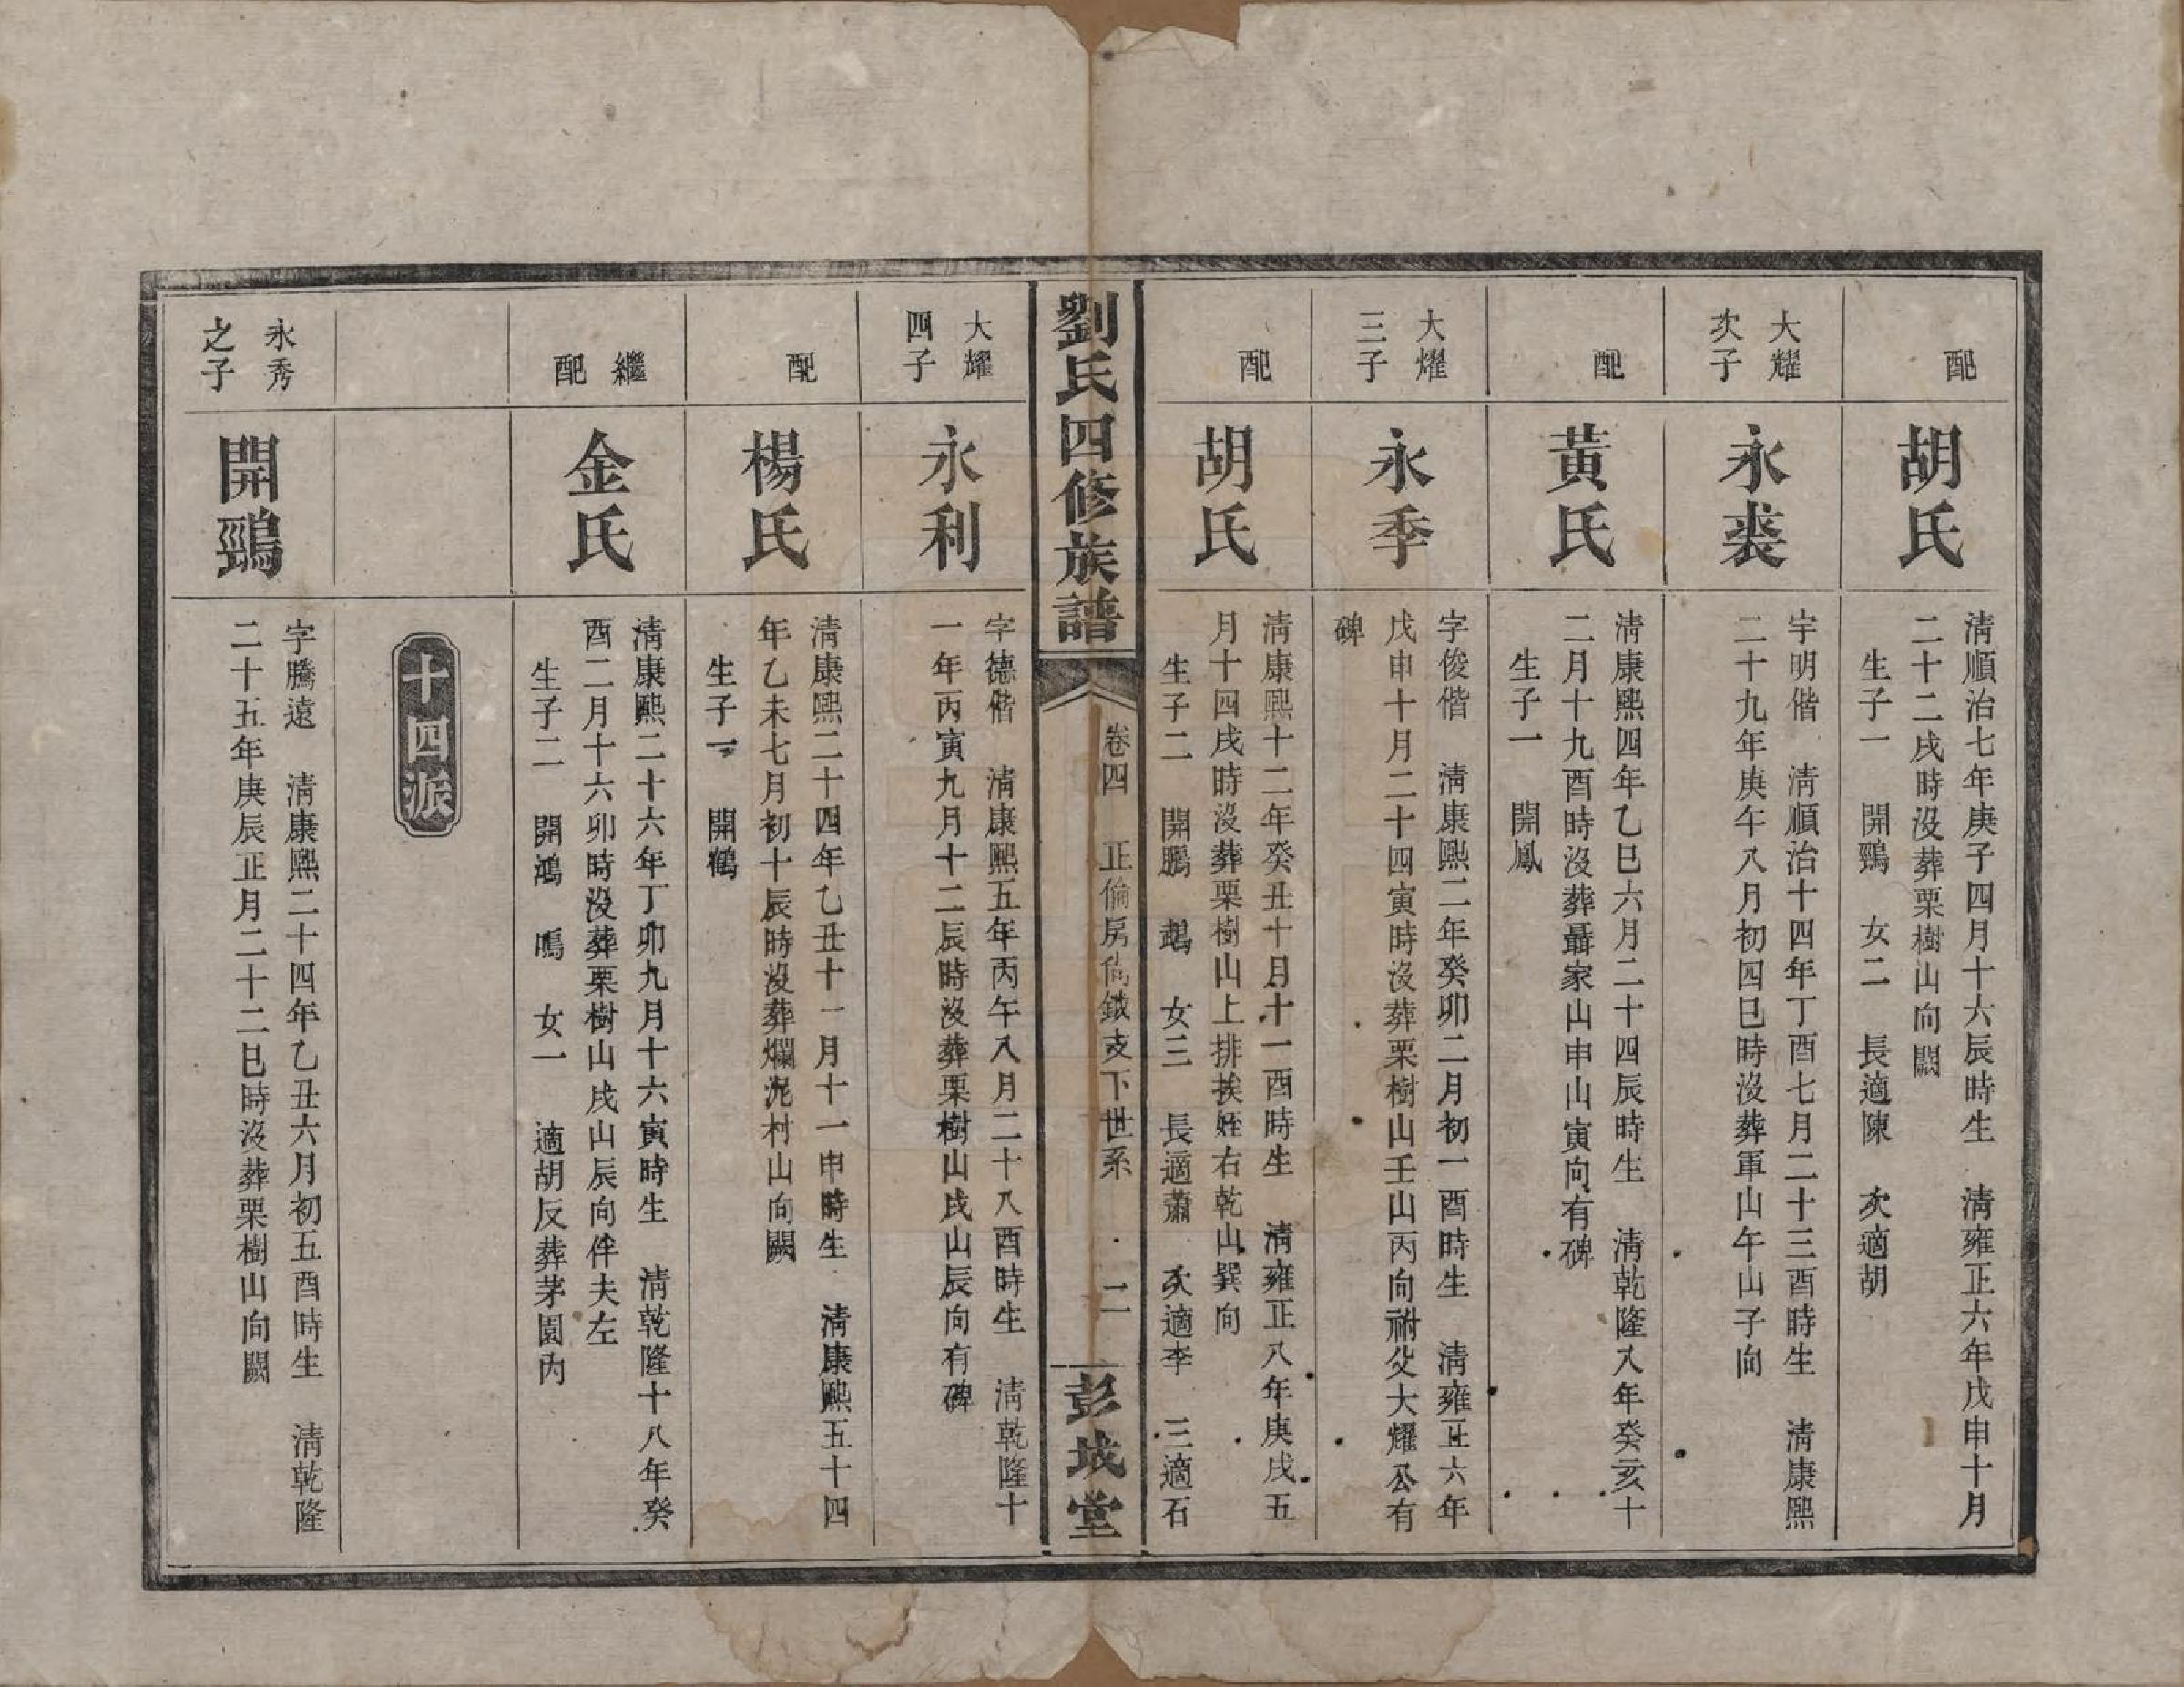 配
胡氏
清順治七年庚子四月十六辰時生　清雍正六年戊申十月
二十二戌時沒葬栗樹山向闕
生子一　開鵛　女二　長適陳　次適胡
大耀
次子
永裘
字明偕　清順治十四年丁酉七月二十三酉時生　清康熙
二十九年庚午八月初四巳時沒葬軍山午山子向
配
黃氏
清康熙四年乙巳六月二十四辰時生　清乾隆八年癸亥十
二月十九酉時沒葬聶家山申山寅向有碑
生子一　開鳳
大耀
三子
永季
字俊偕　清康熙二年癸卯二月初一酉時生　清雍正六年
戊申十月二十四寅時沒葬栗樹山壬山丙向祔父大耀公有
碑
配
胡氏
清康熙十二年癸丑十月十一酉時生　清雍正八年庚戌五
月十四戌時沒葬栗樹山上排挨姪右乾山巽向
生子二　開鵬　鶤　女三　長適蕭　次適李　三適石
劉氏四修族譜
卷四　正倫房儁鐵支下世系　二
彭城堂
大耀
四子
永利
字德偕　清康熙五年丙午八月二十八酉時生　清乾隆十
一年丙寅九月十二辰時沒葬栗樹山戌山辰向有碑
配
楊氏
清康熙二十四年乙丑十一月十一申時生　清康熙五十四
年乙未七月初十辰時沒葬爛泥村山向闕
生子一　開鶴
繼
配
金氏
清康熙二十六年丁卯九月十六寅時生　清乾隆十八年癸
酉二月十六卯時沒葬栗樹山戌山辰向伴夫左
生子二　開鴻　鳴　女一　適胡反葬茅園內
十四派
永秀
之子
開鵛
字騰遠　清康熙二十四年乙丑六月初五酉時生　清乾隆
二十五年庚辰正月二十二巳時沒葬栗樹山向闕